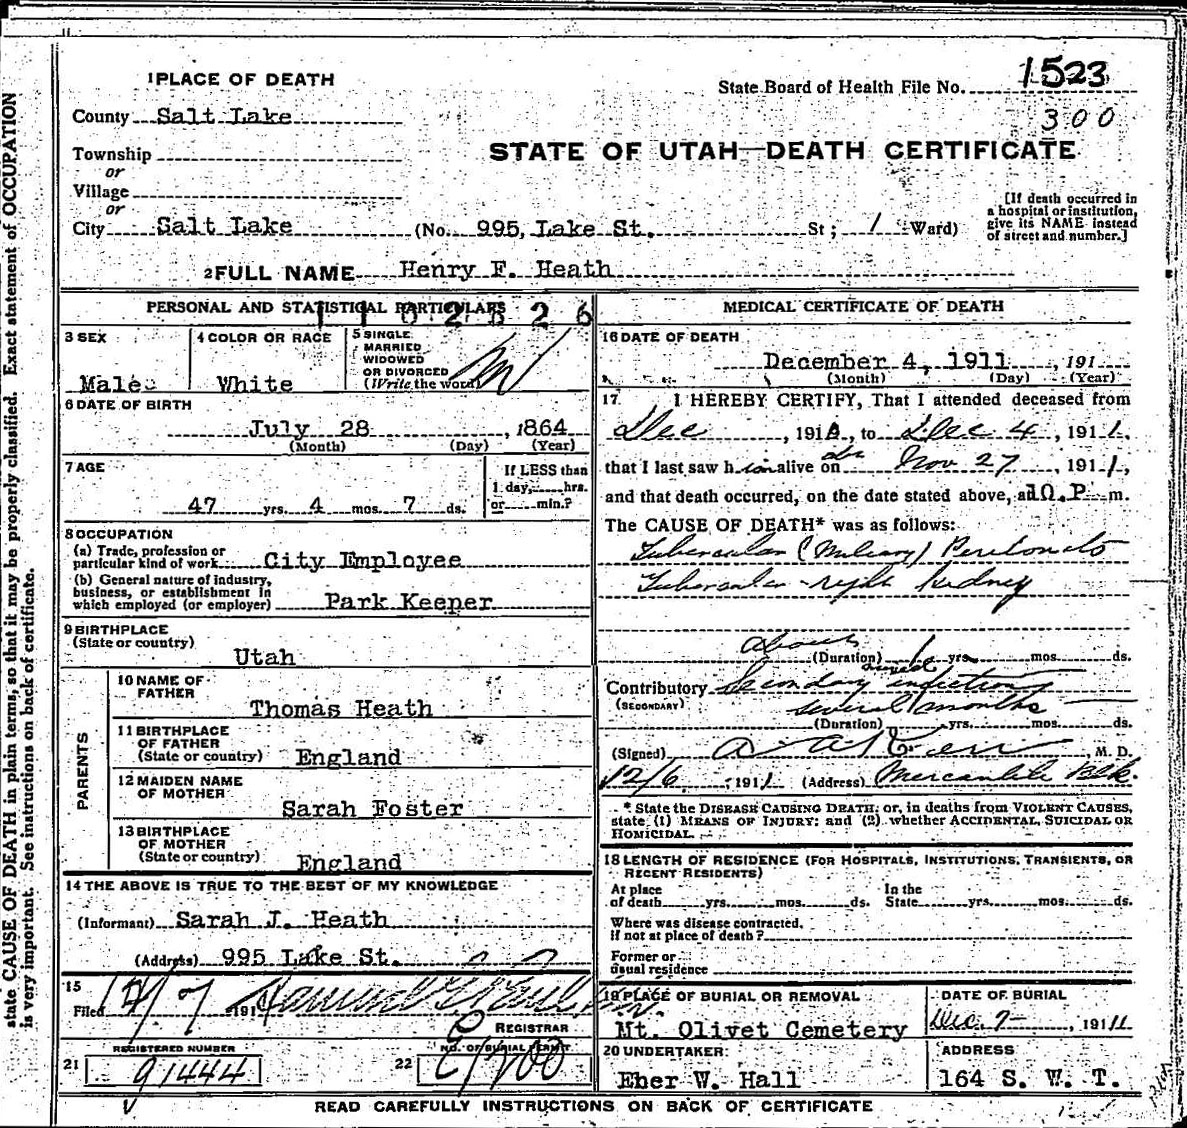 state CAUSE OF DEATH in plain terms, so that it may be properly classified. Exact statement of OCCUPATION
is very important. See instructions on back of certificate.
1 PLACE OF DEATH
State Board of Health File No. 1523
300
County Salt Lake
STATE OF UTAH—DEATH CERTIFICATE
Township
or
Village
or
City Salt Lake (No. 995, Lake St. St; 1 Ward)
[If death occurred in
a hospital or institution,
give its NAME instead
of street and number.]
2 FULL NAME Henry F. Heath
PERSONAL AND STATISTICAL PARTICULARS
3 SEX
Male
4 COLOR OR RACE
White
5 SINGLE
MARRIED
WIDOWED
OR DIVORCED
(Write the word) M
6 DATE OF BIRTH
July 28, 1864
(Month) (Day) (Year)
7 AGE
47 yrs. 4 mos. 7 ds.
If LESS than
1 day, hrs.
or min.?
8 OCCUPATION
(a) Trade, profession or
particular kind of work City Employee
(b) General nature of industry,
business, or establishment in
which employed (or employer) Park Keeper
9 BIRTHPLACE
(State or country)
Utah
PARENTS
10 NAME OF
FATHER
Thomas Heath
11 BIRTHPLACE
OF FATHER
(State or country) England
12 MAIDEN NAME
OF MOTHER
Sarah Foster
13 BIRTHPLACE
OF MOTHER
(State or country) England
14 THE ABOVE IS TRUE TO THE BEST OF MY KNOWLEDGE
(Informant) Sarah J. Heath
(Address) 995 Lake St.
15
Filed 12/7 191
REGISTRAR
REGISTERED NUMBER
21 91444
NO. OF BURIAL PERMIT
22
MEDICAL CERTIFICATE OF DEATH
16 DATE OF DEATH
December 4, 1911, 191
(Month) (Day) (Year)
17 I HEREBY CERTIFY, That I attended deceased from
Dec, 191, to Dec 4, 1911,
that I last saw him alive on Nov 27, 1911,
and that death occurred, on the date stated above, at 10.P m.
The CAUSE OF DEATH* was as follows:
Tubercular (Miliary) Peritonitis
Tubercular right kidney
about
(Duration) 1 yrs. mos. ds.
Contributory Secondary mixed infection
(SECONDARY) several months
(Duration) yrs. mos. ds.
(Signed) M. D.
12/6, 1911 (Address) Mercantile Blk.
* State the DISEASE CAUSING DEATH; or, in deaths from VIOLENT CAUSES,
state (1) MEANS OF INJURY; and (2) whether ACCIDENTAL, SUICIDAL OR
HOMICIDAL.
18 LENGTH OF RESIDENCE (FOR HOSPITALS, INSTITUTIONS, TRANSIENTS, OR
RECENT RESIDENTS)
At place
of death yrs. mos. ds.
In the
State yrs. mos. ds.
Where was disease contracted,
if not at place of death?
Former or
usual residence
19 PLACE OF BURIAL OR REMOVAL
Mt. Olivet Cemetery
DATE OF BURIAL
Dec. 7, 1911
20 UNDERTAKER
Eber W. Hall
ADDRESS
164 S. W. T.
READ CAREFULLY INSTRUCTIONS ON BACK OF CERTIFICATE